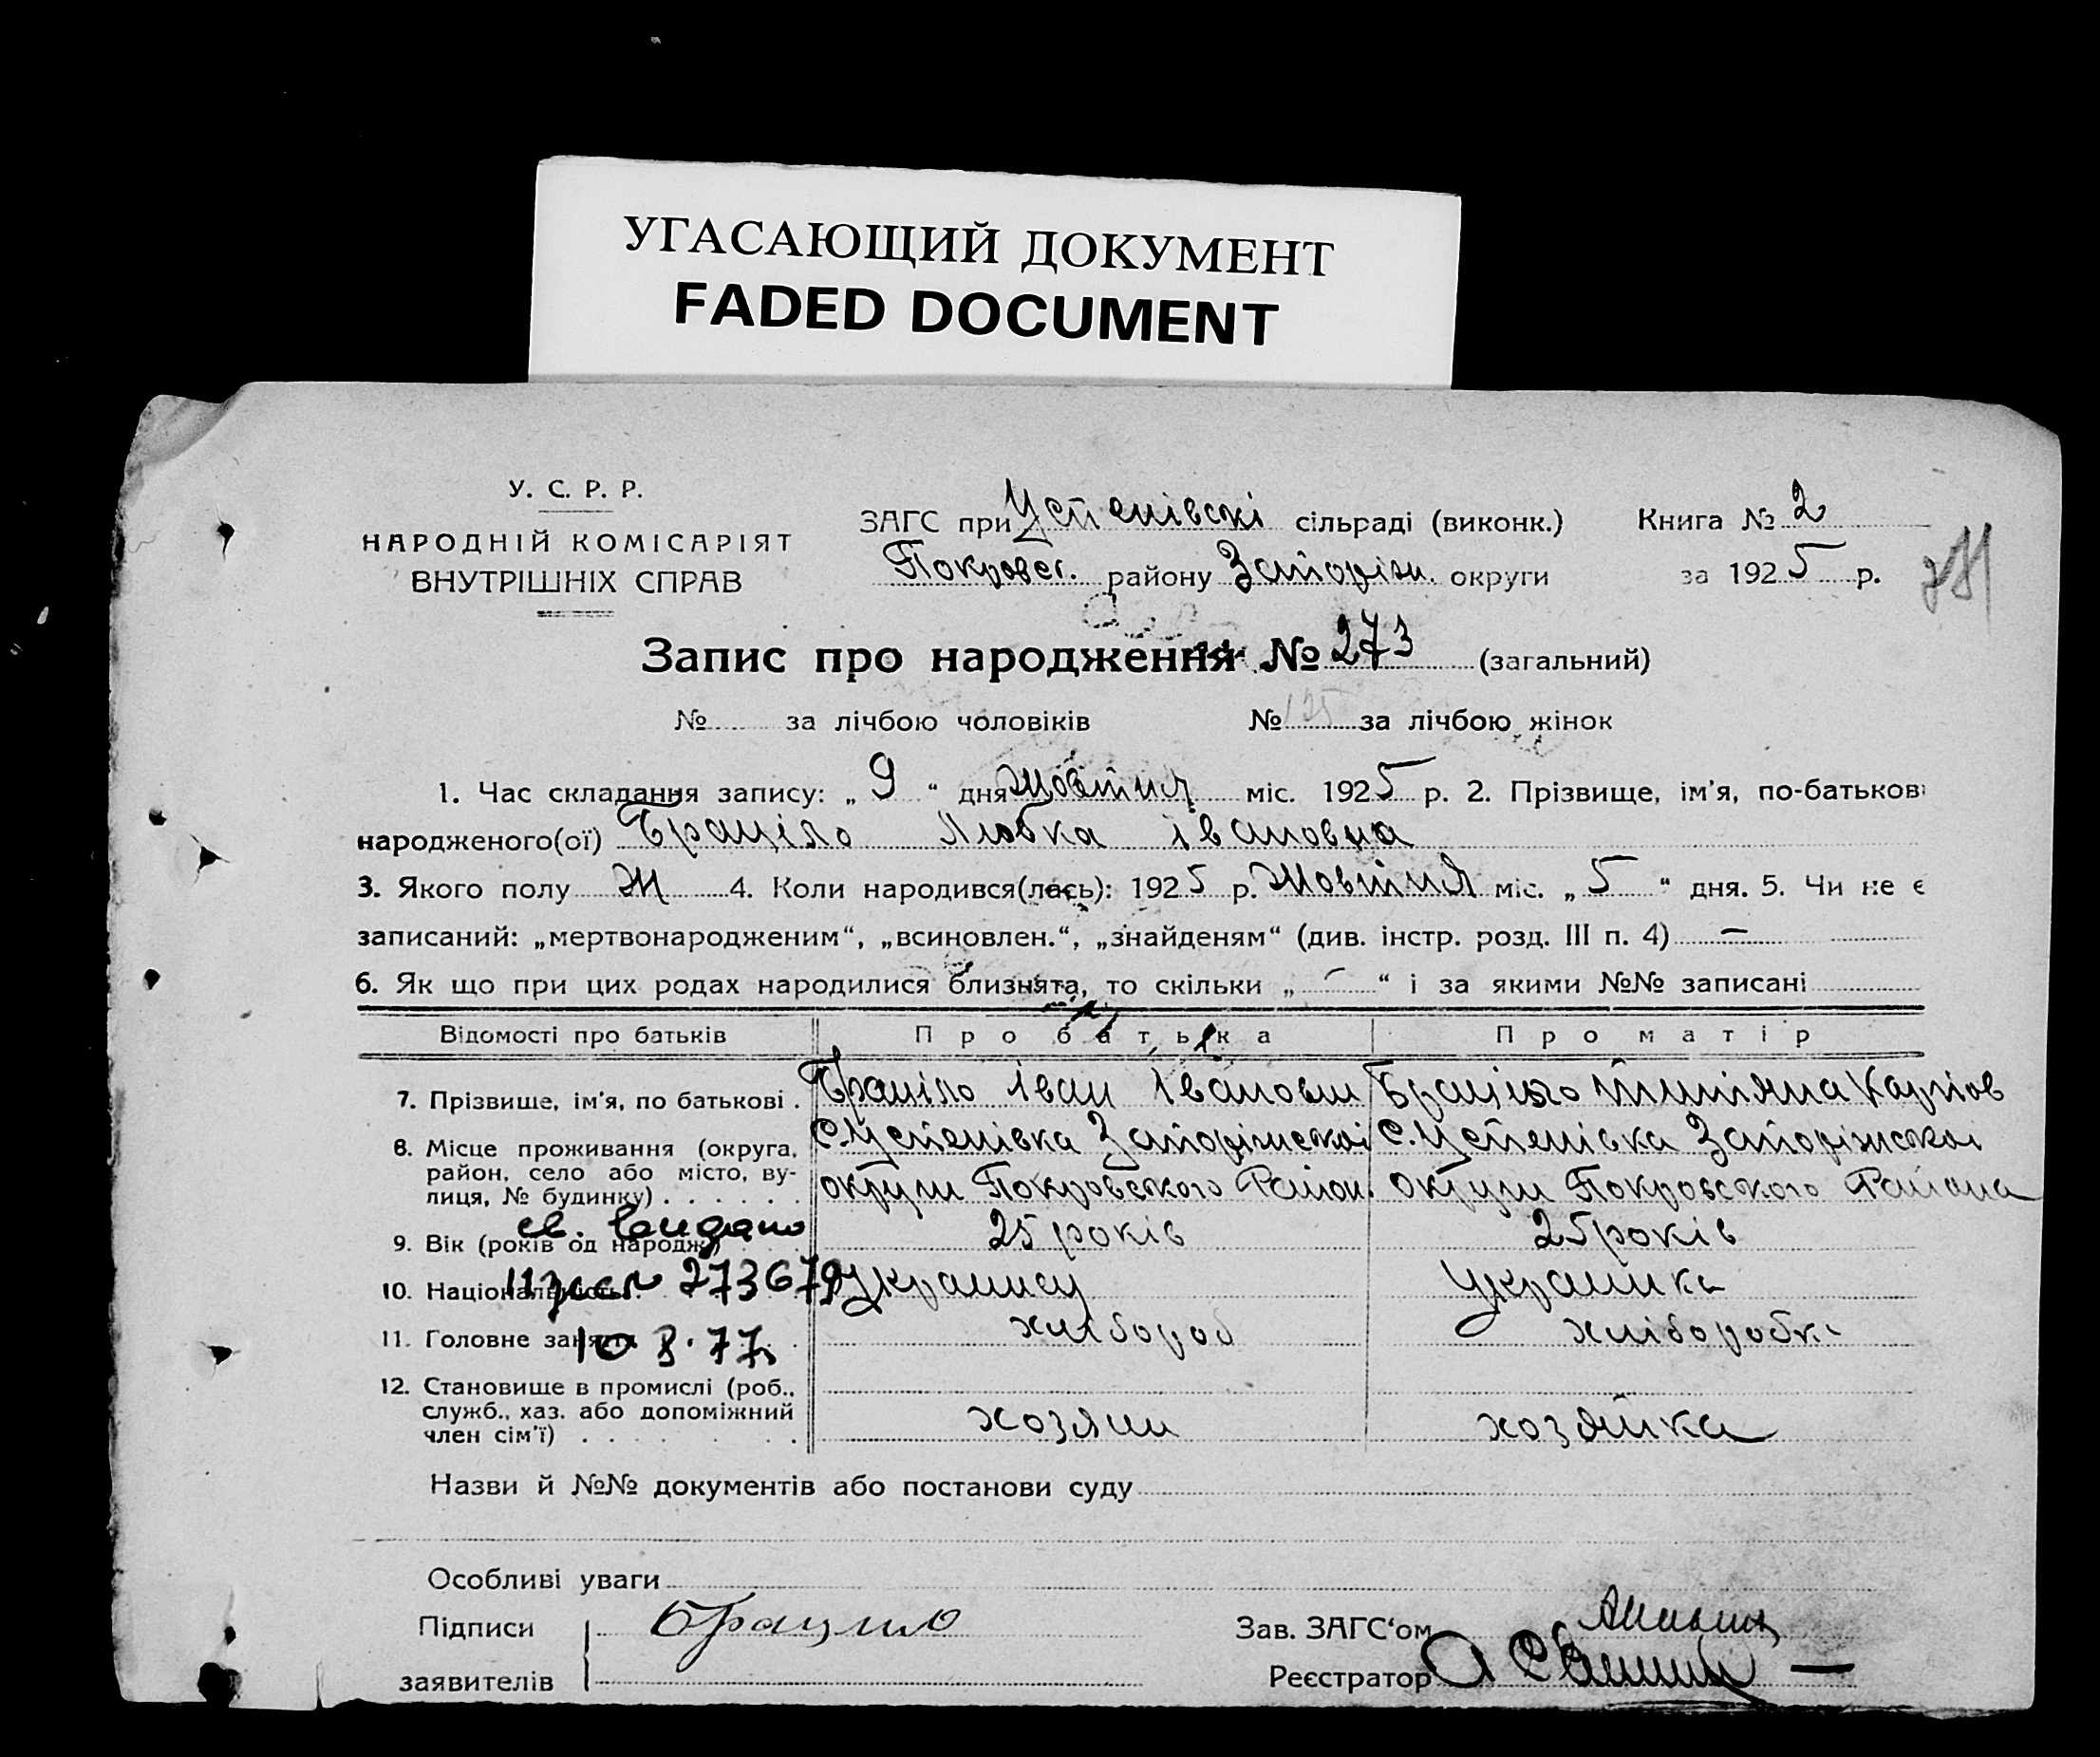 УГАСАЮЩИЙ ДОКУМЕНТ
FADED DOCUMENT
У. С. Р. Р.
НАРОДНІЙ КОМІСАРІЯТ
ВНУТРІШНІХ СПРАВ
ЗАГС при Устенівскі сільраді (виконк.) Книга № 2
Покровсг. району Запоріж. округи за 1925 р.
Запис про народження № 273 (загальний)
№ за лічбою чоловіків № 125 за лічбою жінок
1. Час складання запису: „ 9 “ дня Жовтня міс. 1925 р. 2. Прізвище, ім'я, по-батькові
народженого(ої) Браціло Любка Івановна
3. Якого полу Ж 4. Коли народився(лась): 1925 р. Жовтня міс. „ 5 “ дня. 5. Чи не є
записаний: „мертвонародженим“, „всиновлен.“, „знайденям“ (див. інстр. розд. III п. 4) —
6. Як що при цих родах народилися близнята, то скільки „ — “ і за якими №№ записані
Відомості про батьків Про батька Про матір
7. Прізвище, ім'я, по батькові . Браціло Іван Іванович Браціло Титяна Карпов
8. Місце проживання (округа, с. Устенівка Запоріжскоі с. Устенівка Запоріжскоі
район, село або місто, ву-
лиця, № будинку) . . . . . . округи Покровського Район. округи Покровського Района
св. видано
9. Вік (років од народж.) 25 років 25 років
273679
10. Національність . Украинец Украинка
11. Головне заняття хлібороб хліборобка
10 8.77
12. Становище в промислі (роб.,
служб., хаз. або допоміжний хозяин хозяйка
член сім'ї) . . . . . .
Назви й №№ документів або постанови суду
Особливі уваги
Підписи Брацило Зав. ЗАГС‘ом
заявителів Реєстратор